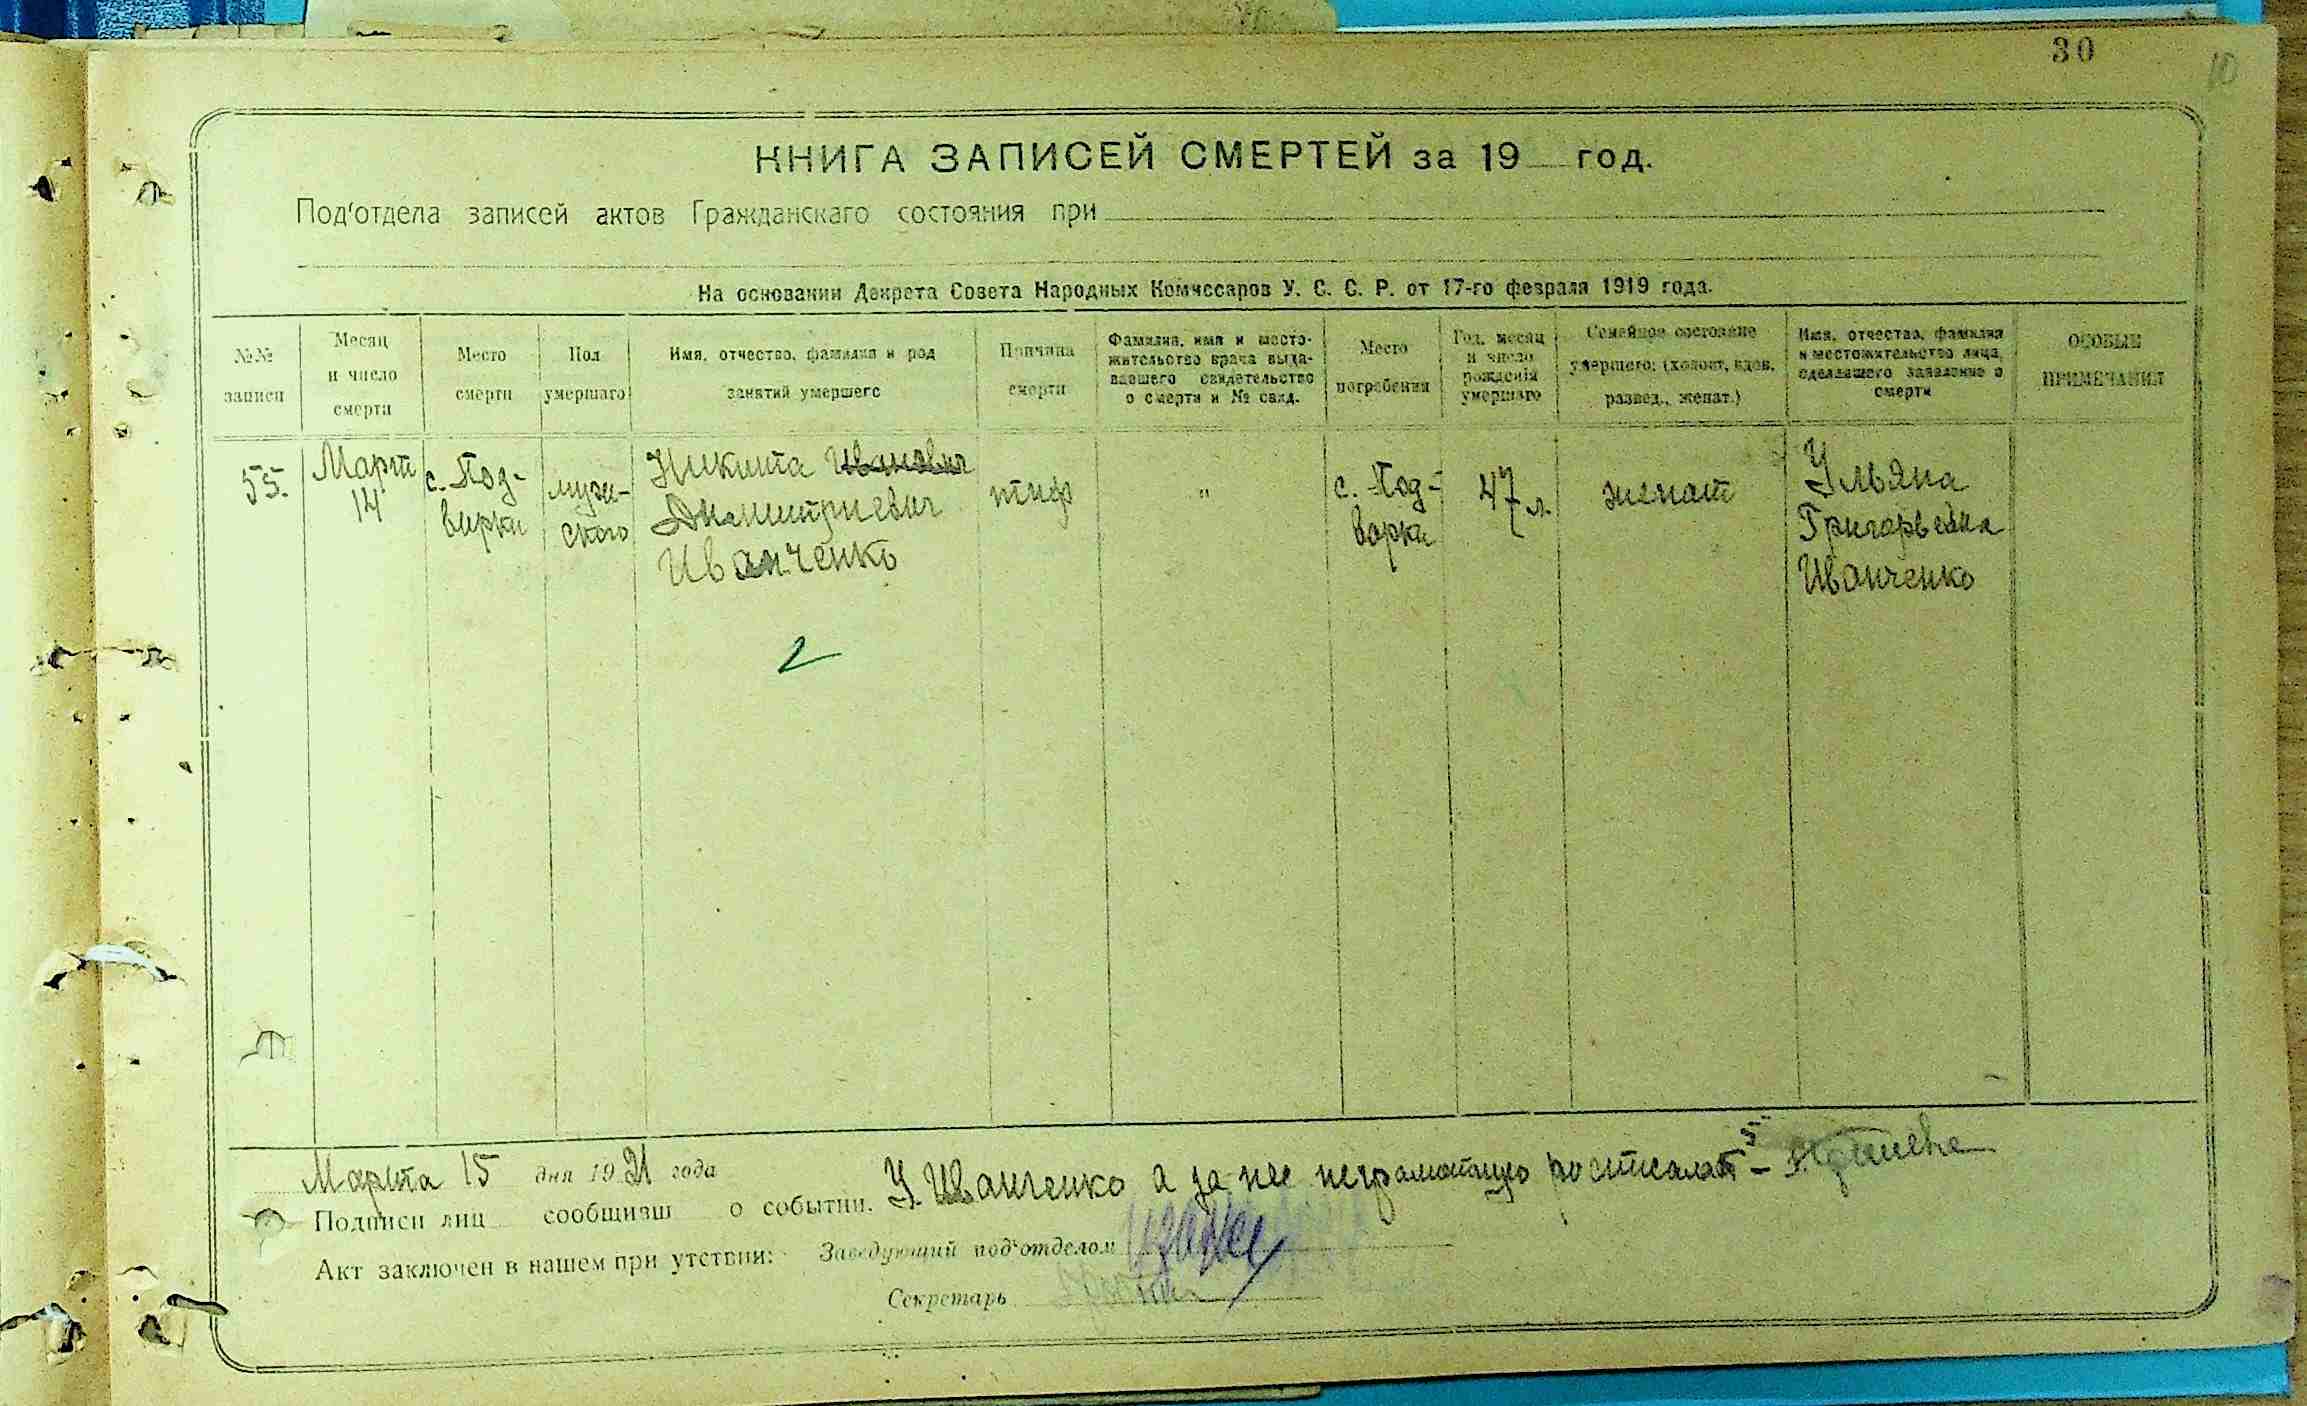 30
10
КНИГА ЗАПИСЕЙ СМЕРТЕЙ за 19 год.
Под'отдела записей актов Гражданскаго состояния при
На основании Декрета Совета Народных Комиссаров У. С. С. Р. от 17-го февраля 1919 года.
№№
записи
Месяц
и число
смерти
Место
смерти
Пол
умершаго
Имя, отчество, фамилия и род
занятий умершего
Причина
смерти
Фамилия, имя и место-
жительство врача выда-
вавшего свидетельство
о смерти и № свид.
Место
погребения
Год, месяц
и число
рождения
умершаго
Семейное состояние
умершего: (холост, вдов,
развед., женат.)
Имя, отчество, фамилия
и местожительство лица,
сделавшего заявление о
смерти
ОСОБЫЕ
ПРИМЕЧАНИЯ
55.
Март
14
с. Под-
ворки
мужи-
ского
Никита Иванович
Дмитриевич
Иванченко
тиф
"
с. Под-
ворки
47 л.
женат
Ульяна
Григорьевна
Иванченко
2
Марта 15 дня 1921 года
Подписи лиц сообщивш о событии. У. Иванченко а за нее неграмотную
Акт заключен в нашем при утствии: Заведующий под'отделом
Секретарь